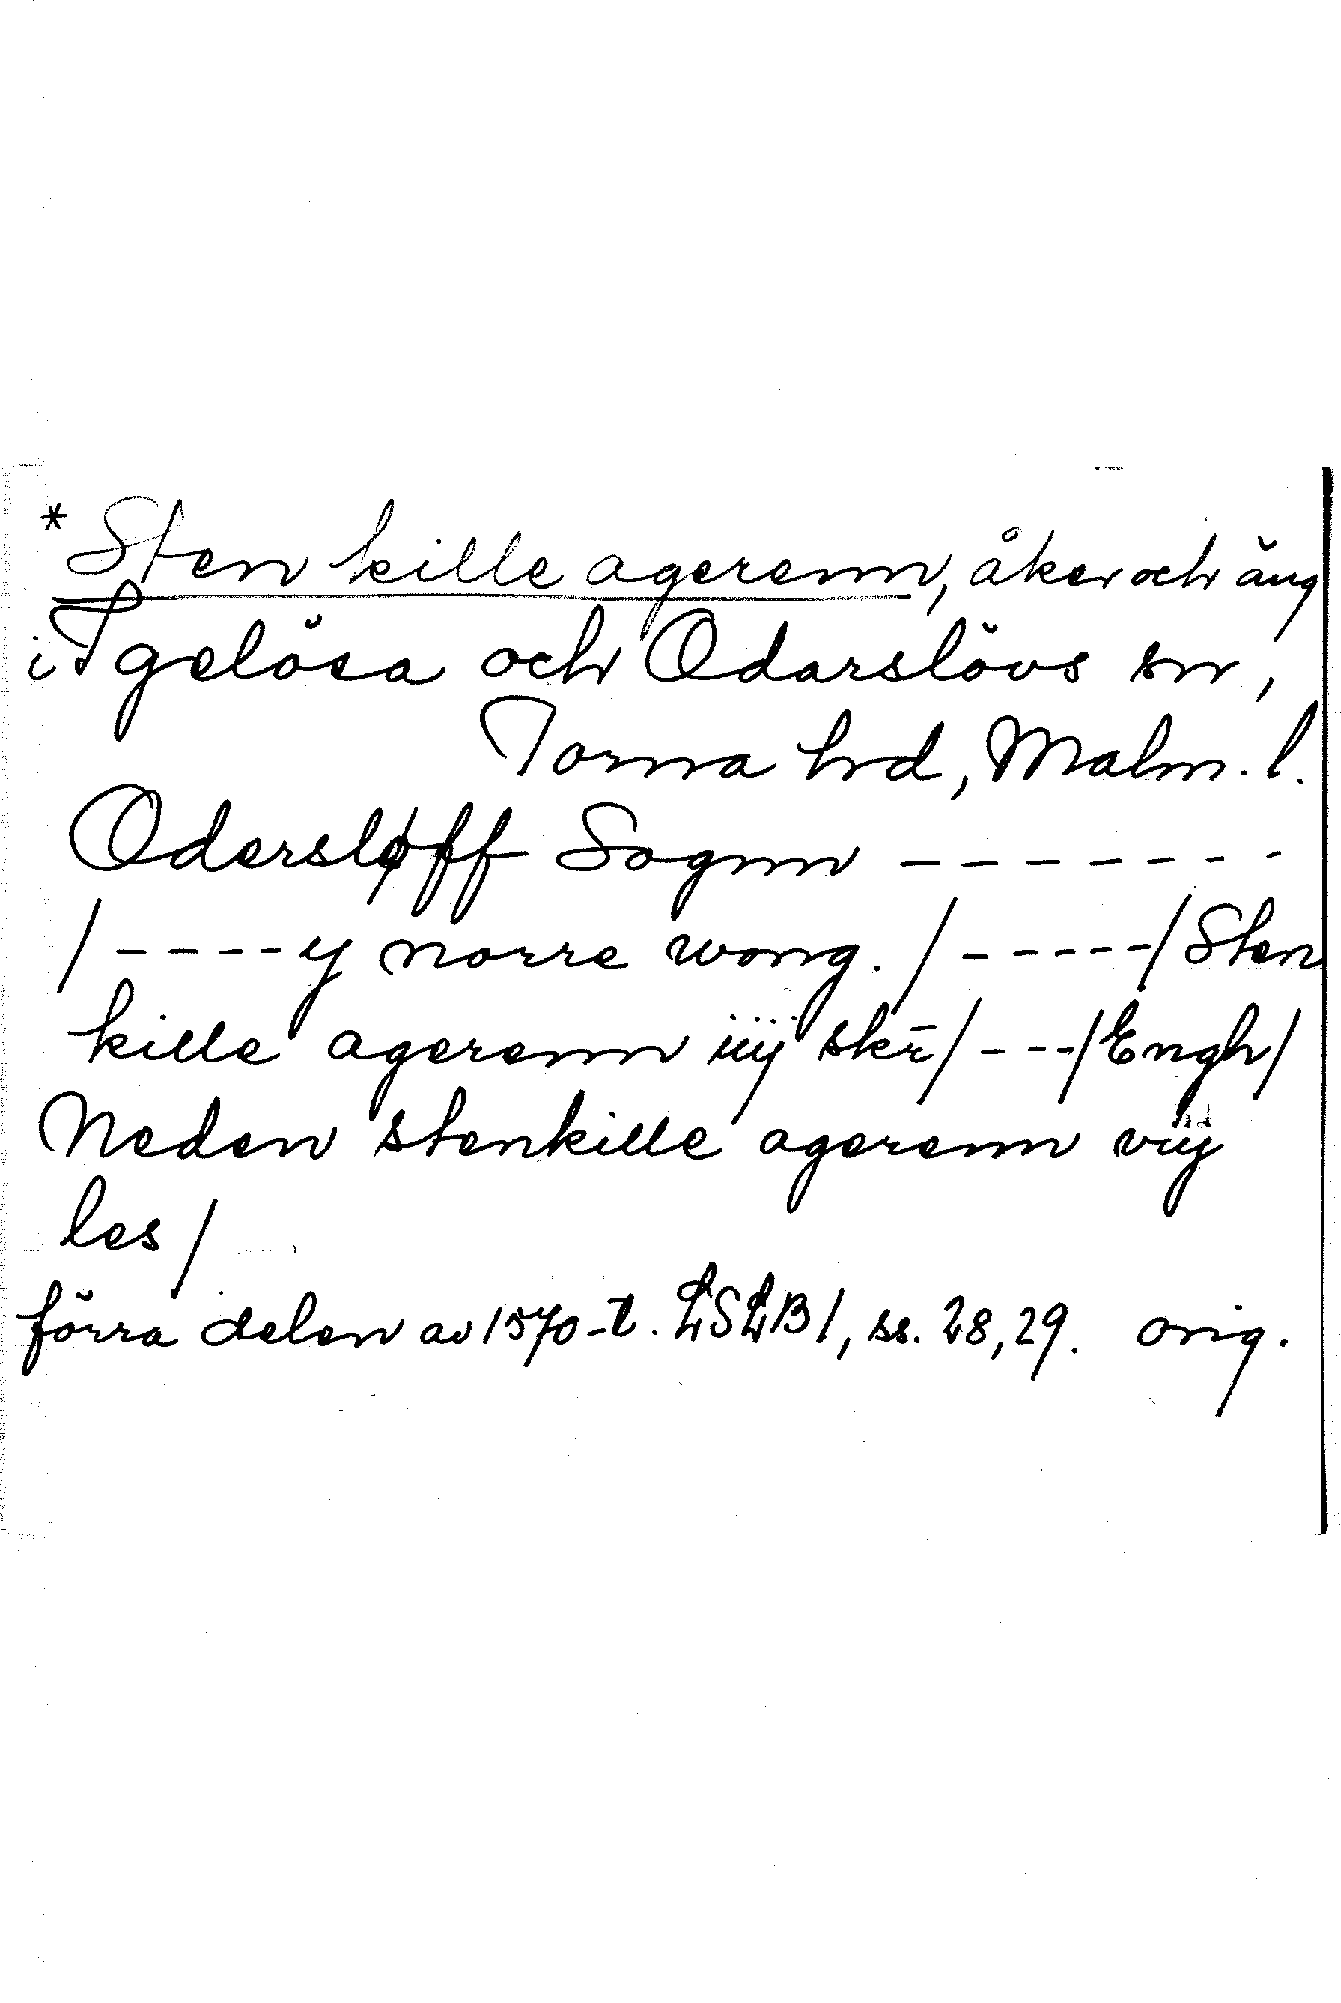 *Sten kille agerenn, åker och äng
i Igelösa och Odarslövs snr,
Torna hrd, Malm. l.
Odersløff Sognn -------
/----y norre wong. /-----/ Sten
kille agerenn iiij skr̄/---/Engh/
Neden stenkille agerenn viij
les/
förra delen av 1570-t. LSLB 1, ss. 28, 29. orig.